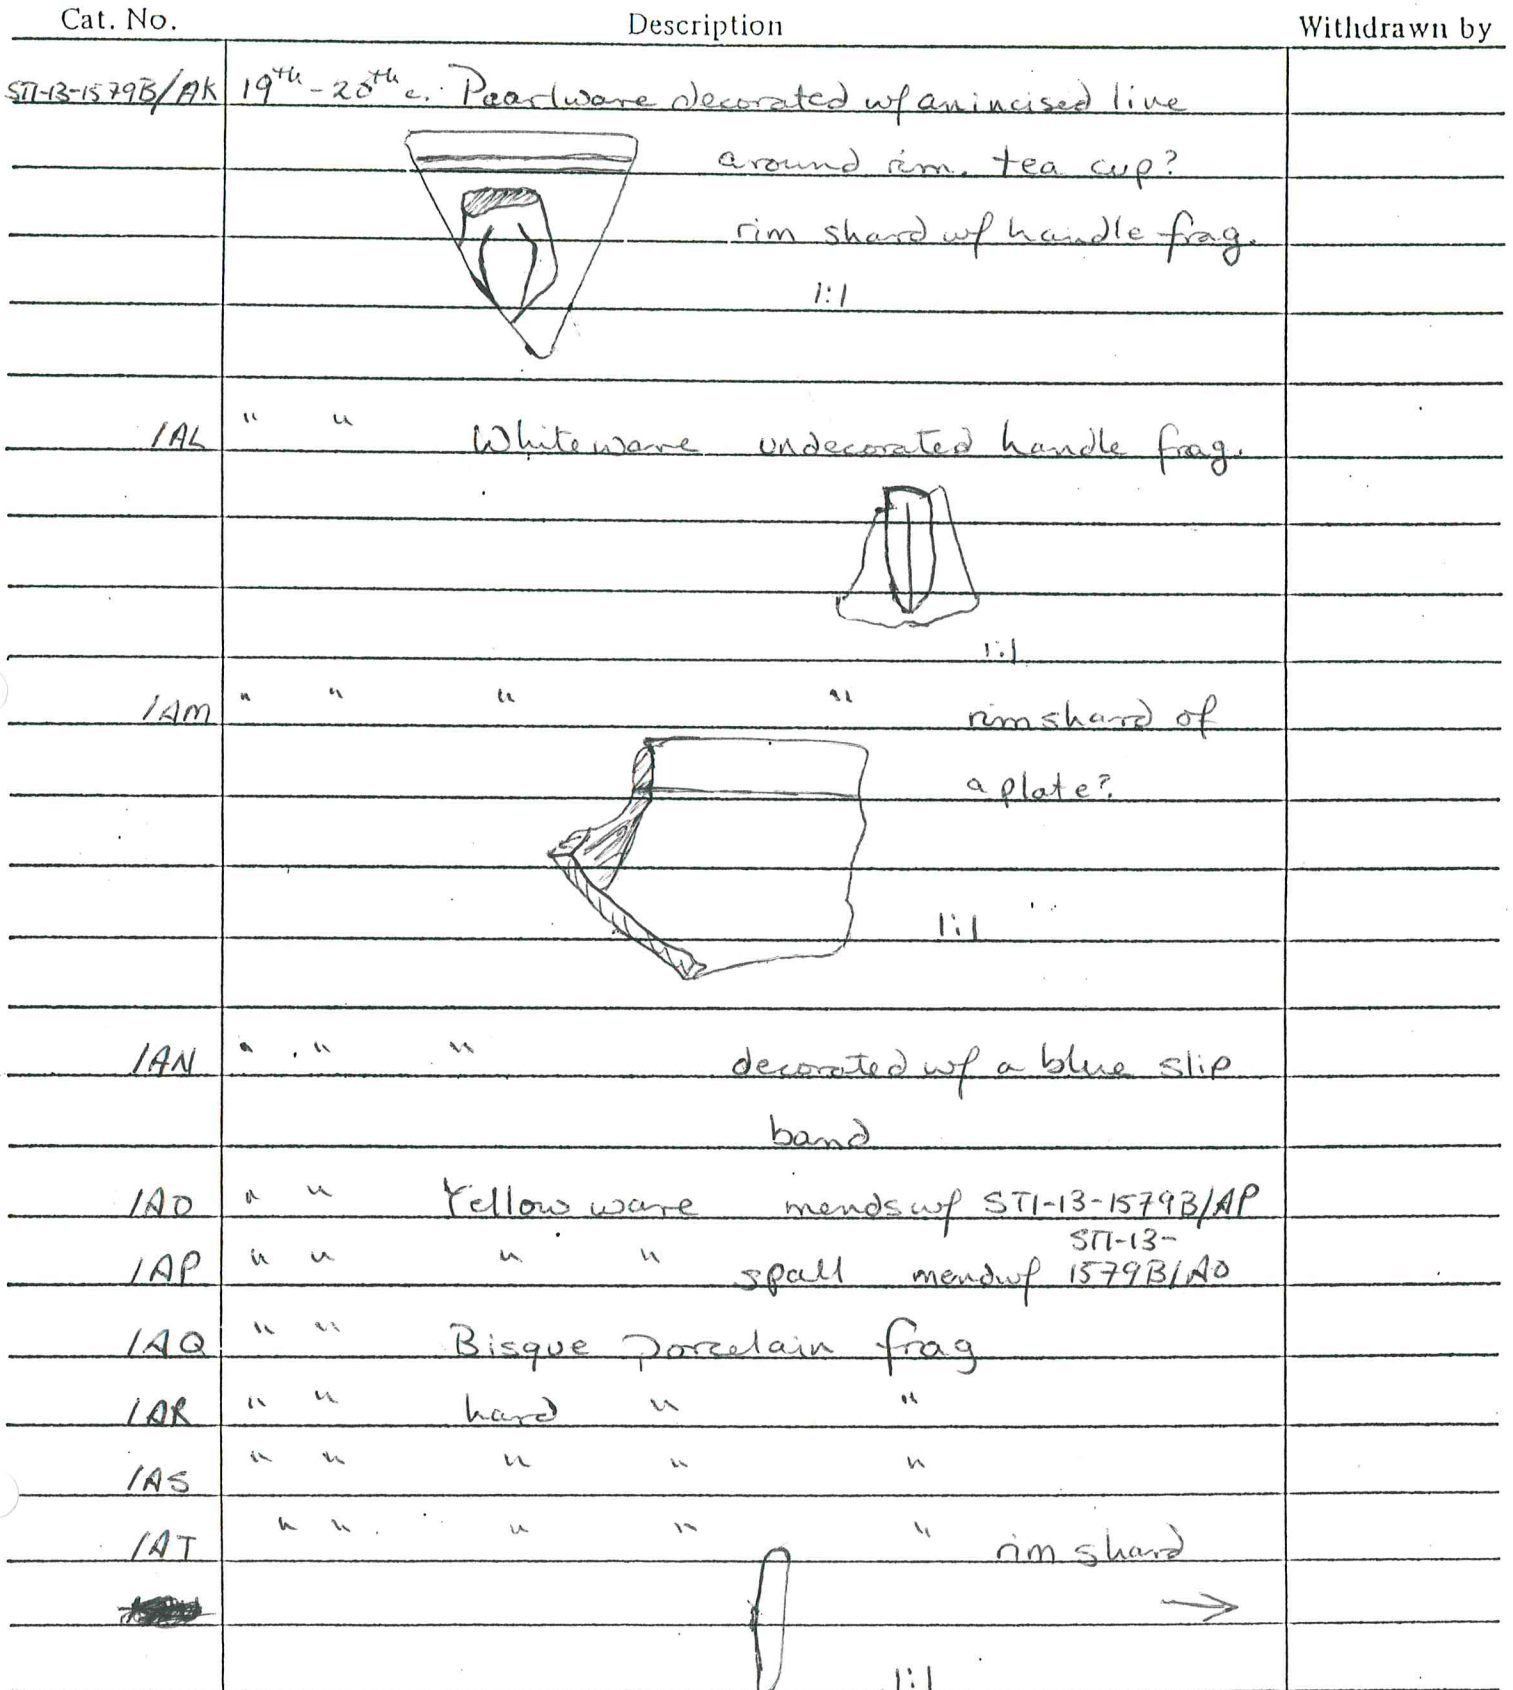 Cat. No. Description Withdrawn by
STI-13-1579B/AK 19th-20th c. Pearlware decorated w/ an incised line
around rim. tea cup?
rim shard w/ handle frag.
1:1
/AL " " Whiteware undecorated handle frag.
1:1
/AM " " " " rim shard of
a plate?
1:1
/AN " " " decorated w/ a blue slip
band
/AO " " Yellow ware mends w/ STI-13-1579B/AP
/AP " " " " spall mend w/ STI-13-
1579B/AO
/AQ " " Bisque porcelain frag
/AR " " hard " "
/AS " " " " "
/AT " " " " " rim shard
1:1